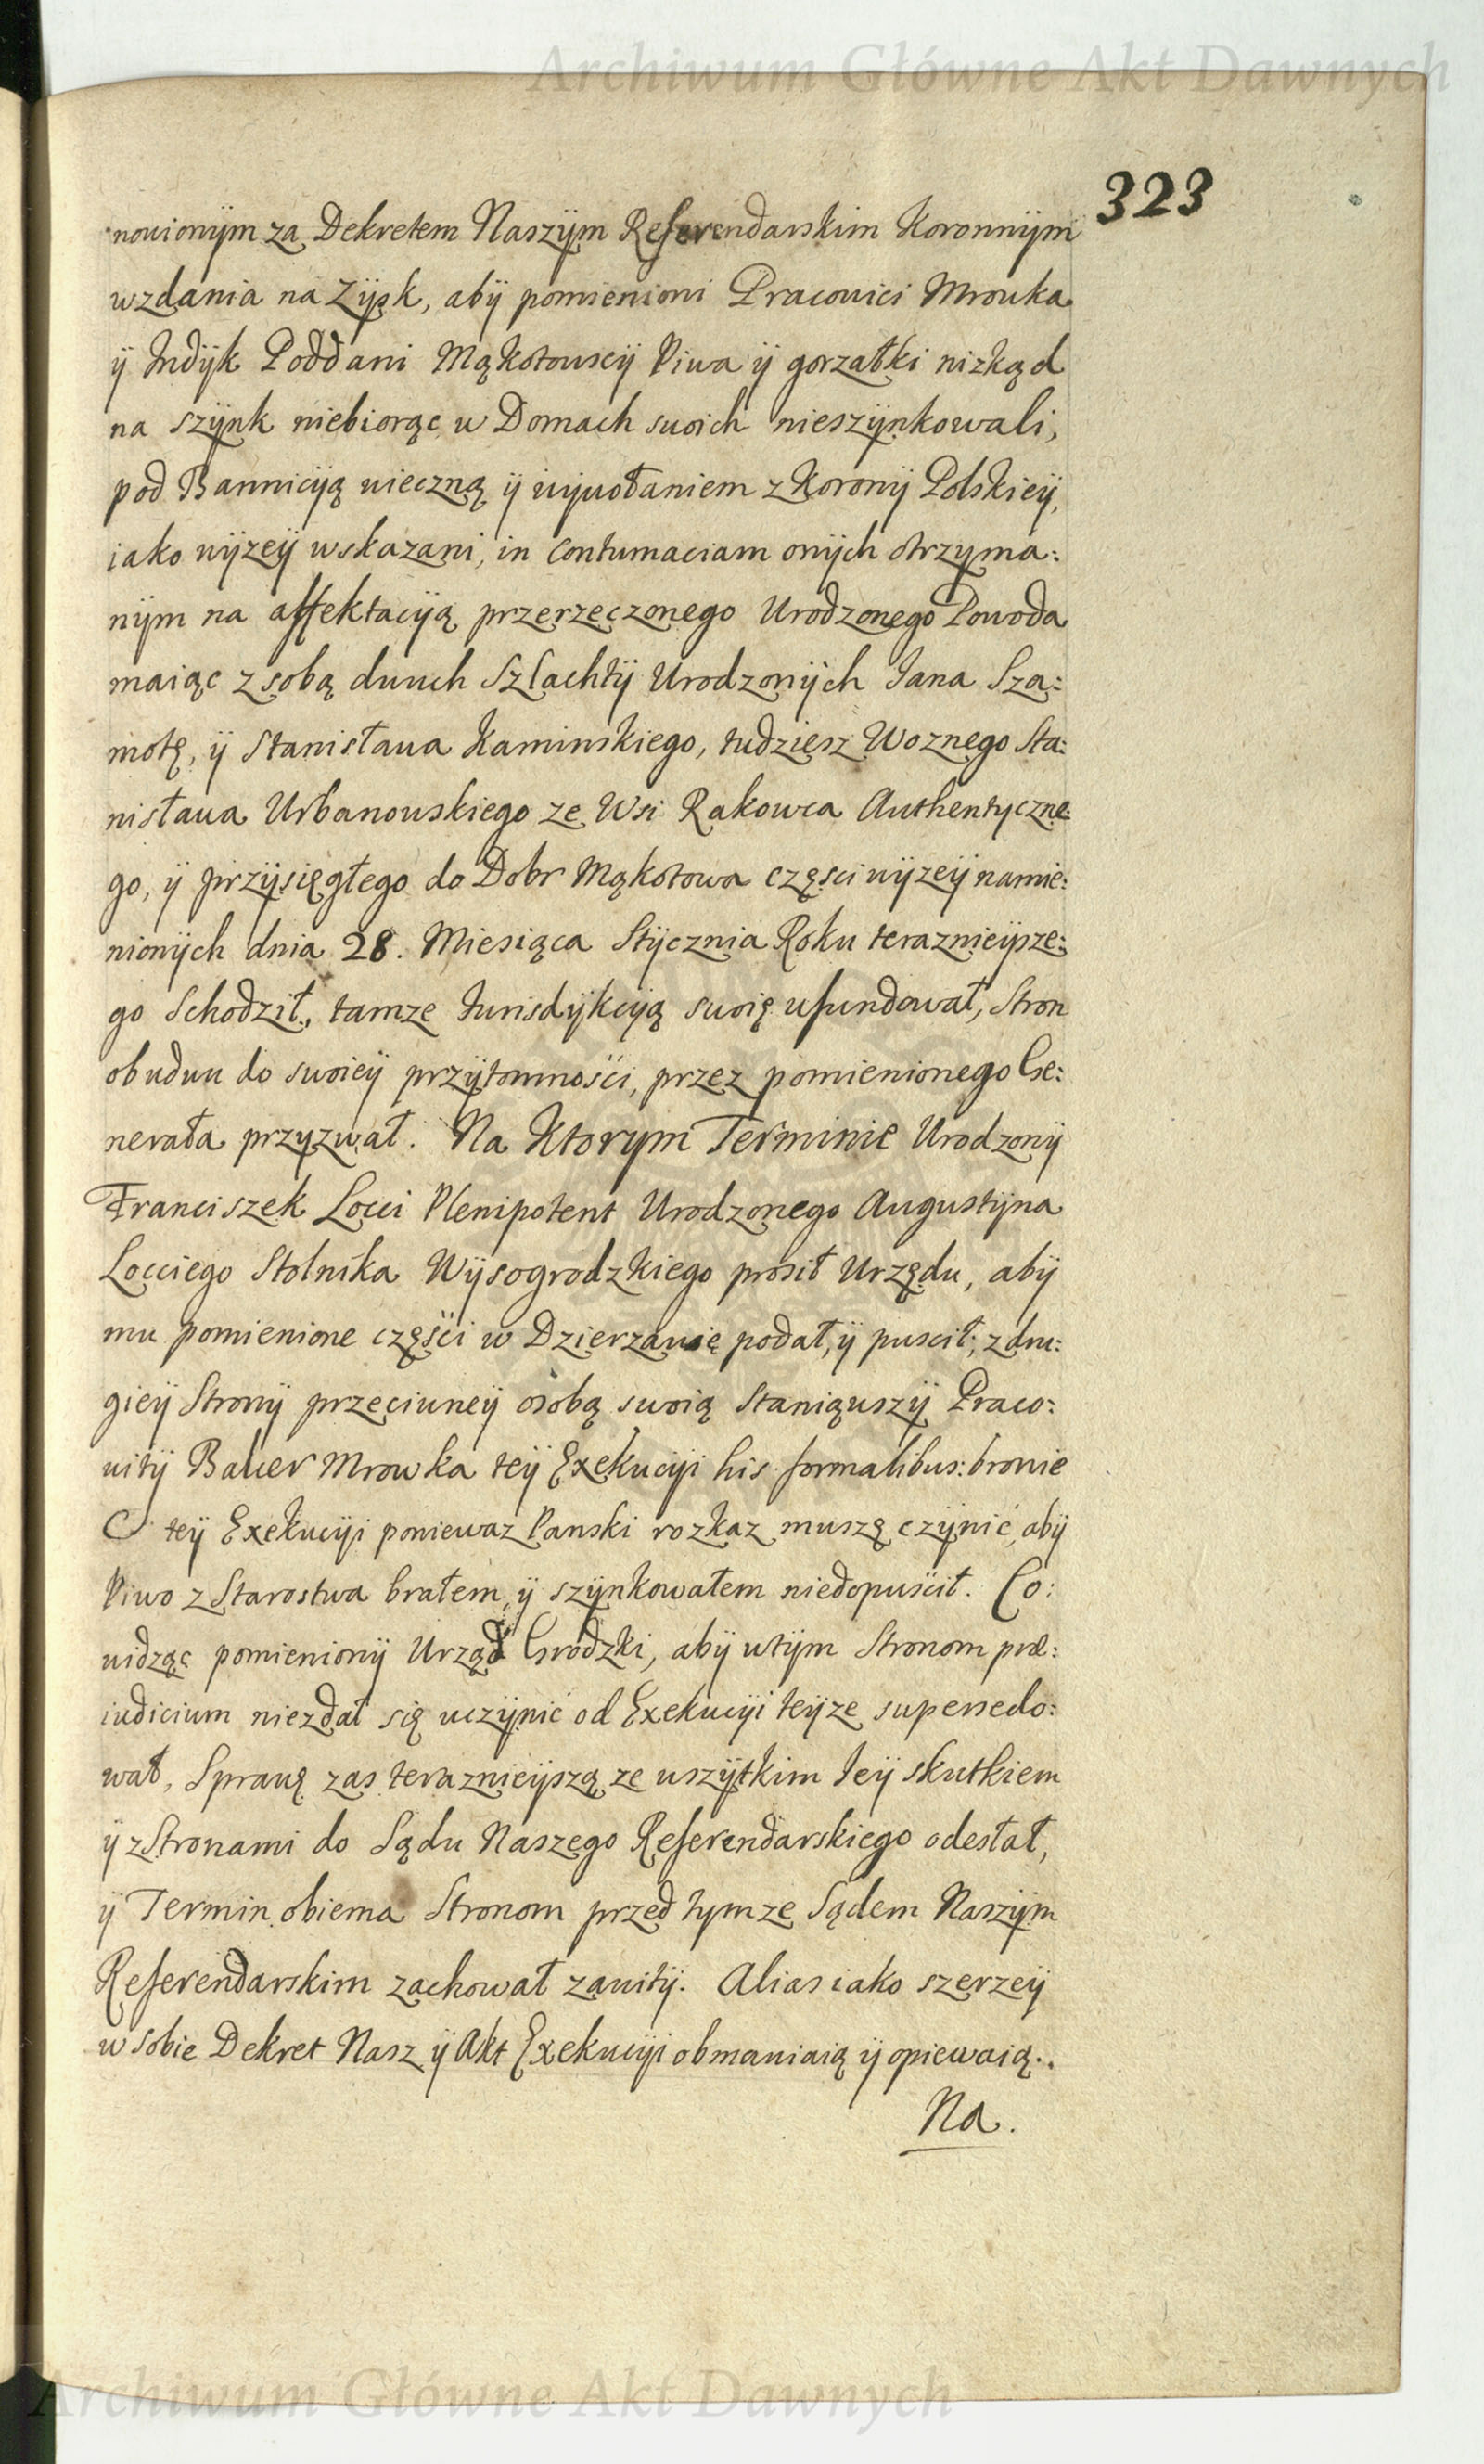 Archiwum Główne Akt Dawnych
323
nowionÿm za Dekretem Naszÿm Referendarskim Koronnÿm
wzdania na Zÿsk, abÿ pomienioni Pracowici Mrowka
ÿ Indÿk Poddani Mąkotowscÿ Piwa ÿ gorzałki nizkąd
na szÿnk niebiorąc w Domach swoich nieszÿnkowali,
pod Bannicÿą wieczną ÿ wÿwołaniem z Koronÿ Polskieÿ,
iako wÿzeÿ wskazani, in contumaciam onÿch otrzyma:
nÿm na affektacÿą przerzeczonego Urodzonego Powoda
maiąc z sobą dwuch Szlachtÿ Urodzonÿch Jana Sza:
motę, ÿ Stanisława Kaminskiego, tudziesz Woznego Sta:
nisława Urbanowskiego ze Wsi Rakowca Authentyczne:
go, ÿ przÿsięgłego do Dobr Mąkotowa częsci wÿzeÿ namie:
nionÿch dnia 28. Miesiąca Stÿcznia Roku teraznieÿsze:
go Schodził, tamze Jurisdÿkcÿą swoię ufundował, Stron
obudwu do swoieÿ przÿtomnosci, przez pomienionego Ge:
nerała przyzwał. Na Ktorym Terminie Urodzonÿ
Franciszek Locci Plenipotent Urodzonego Augustÿna
Locciego Stolnika Wÿsogrodzkiego prosił Urzędu, abÿ
mu pomienione częsci w Dzierzawię podał, ÿ puscił; z dru:
gieÿ Stronÿ przeciwneÿ osobą swoią Staniąwszÿ Praco:
witÿ Bawer Mrowka teÿ Exekucÿi his formalibus: bronie
teÿ Exekucÿi poniewaz Panski rozkaz muszę czÿnić, abÿ
Piwo z Starostwa brałem, ÿ szÿnkowałem niedopuscił. Co:
widząc pomienionÿ Urząd Grodzki, abÿ wtÿm Stronom præ:
iudicium niezdał się uczÿnić od Exekucÿi teÿze supersedo:
wał, Sprawę zas teraznieÿszą ze wszÿtkim Jeÿ skutkiem
ÿ z Stronami do Sądu Naszego Referendarskiego odesłał,
ÿ Termin obiema Stronom przed tymze Sądem Naszÿm
Referendarskim zachował zawitÿ. Alias iako szerzeÿ
w sobie Dekret Nasz ÿ Akt Exekucÿi obmawiaią ÿ opiewaią.
Na.
Archiwum Główne Akt Dawnych